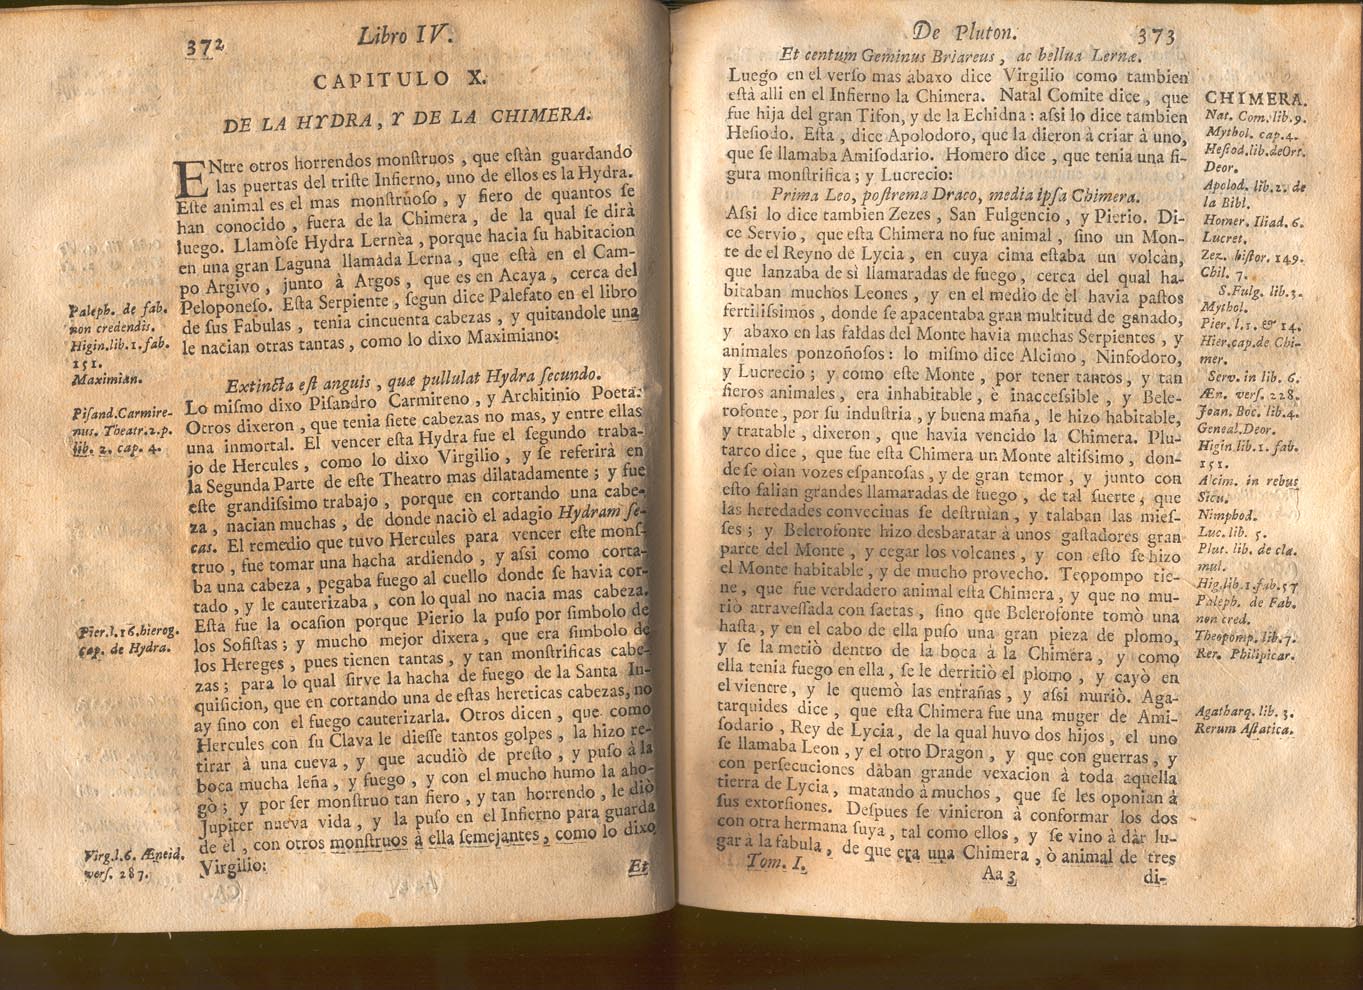 372
Libro IV.
CAPITULO X.
DE LA HYDRA, Y DE LA CHIMERA.
ENtre otros horrendos monſtruos, que eſtàn guardando
las puertas del triſte Infierno, uno de ellos es la Hydra.
Eſte animal es el mas monſtruoſo, y fiero de quantos ſe
han conocido, fuera de la Chimera, de la qual ſe dirà
luego. Llamòſe Hydra Lernèa, porque hacia ſu habitacion
en una gran Laguna llamada Lerna, que eſtà en el Cam-
po Argivo, junto à Argos, que es en Acaya, cerca del
Peloponeſo. Eſta Serpiente, ſegun dice Palefato en el libro
de ſus Fabulas, tenia cincuenta cabezas, y quitandole una
le nacian otras tantas, como lo dixo Maximiano:
Extincta eſt anguis, quæ pullulat Hydra ſecundo.
Lo miſmo dixo Piſandro Carmireno, y Architinio Poeta.
Otros dixeron, que tenia ſiete cabezas no mas, y entre ellas
una inmortal. El vencer eſta Hydra fue el ſegundo traba-
jo de Hercules, como lo dixo Virgilio, y ſe referirà en
la Segunda Parte de eſte Theatro mas dilatadamente; y fue
eſte grandiſsimo trabajo, porque en cortando una cabe-
za, nacian muchas, de donde naciò el adagio Hydram ſe-
cas. El remedio que tuvo Hercules para vencer eſte monſ-
truo, fue tomar una hacha ardiendo, y aſsi como corta-
ba una cabeza, pegaba fuego al cuello donde ſe havia cor-
tado, y le cauterizaba, con lo qual no nacia mas cabeza.
Eſta fue la ocaſion porque Pierio la puſo por ſimbolo de
los Sofiſtas; y mucho mejor dixera, que era ſimbolo de
los Hereges, pues tienen tantas, y tan monſtrificas cabe-
zas; para lo qual ſirve la hacha de fuego de la Santa In-
quiſicion, que en cortando una de eſtas hereticas cabezas, no
ay ſino con el fuego cauterizarla. Otros dicen, que como
Hercules con ſu Clava le dieſſe tantos golpes, la hizo re-
tirar à una cueva, y que acudiò de preſto, y puſo à la
boca mucha leña, y fuego, y con el mucho humo la aho-
gò; y por ſer monſtruo tan fiero, y tan horrendo, le diò
Jupiter nueva vida, y la puſo en el Infierno para guarda
de èl, con otros monſtruos à ella ſemejantes, como lo dixo
Virgilio:
Et
Palepb. de fab.
non credendis.
Higin.lib.1.fab.
151.
Maximian.
Piſand.Carmire-
nus. Theatr.2.p.
lib. 2. cap. 4.
Pier.l.16.hierog.
cap. de Hydra.
Virg.l.6. Æneid.
verſ. 287.
De Pluton.
373
Et centum Geminus Briareus, ac bellua Lernæ.
Luego en el verſo mas abaxo dice Virgilio como tambien
eſtà alli en el Infierno la Chimera. Natal Comite dice, que
fue hija del gran Tifon, y de la Echidna: aſsi lo dice tambien
Heſiodo. Eſta, dice Apolodoro, que la dieron à criar à uno,
que ſe llamaba Amiſodario. Homero dice, que tenia una fi-
gura monſtrifica; y Lucrecio:
Prima Leo, poſtrema Draco, media ipſa Chimera.
Aſsi lo dice tambien Zezes, San Fulgencio, y Pierio. Di-
ce Servio, que eſta Chimera no fue animal, ſino un Mon-
te de el Reyno de Lycia, en cuya cima eſtaba un volcàn,
que lanzaba de sì llamaradas de fuego, cerca del qual ha-
bitaban muchos Leones, y en el medio de èl havia paſtos
fertiliſsimos, donde ſe apacentaba gran multitud de ganado,
y abaxo en las faldas del Monte havia muchas Serpientes, y
animales ponzoñoſos: lo miſmo dice Alcimo, Ninfodoro,
y Lucrecio; y como eſte Monte, por tener tantos, y tan
fieros animales, era inhabitable, è inacceſsible, y Bele-
rofonte, por ſu induſtria, y buena maña, le hizo habitable,
y tratable, dixeron, que havia vencido la Chimera. Plu-
tarco dice, que fue eſta Chimera un Monte altiſsimo, don-
de ſe oìan vozes eſpantoſas, y de gran temor, y junto con
eſto ſalian grandes llamaradas de fuego, de tal ſuerte, que
las heredades convecinas ſe deſtruìan, y talaban las mieſ-
ſes; y Belerofonte hizo desbaratar à unos gaſtadores gran
parte del Monte, y cegar los volcanes, y con eſto ſe hizo
el Monte habitable, y de mucho provecho. Teopompo tie-
ne, que fue verdadero animal eſta Chimera, y que no mu-
riò atraveſſada con ſaetas, ſino que Belerofonte tomò una
haſta, y en el cabo de ella puſo una gran pieza de plomo,
y ſe la metiò dentro de la boca à la Chimera, y como
ella tenia fuego en ella, ſe le derritiò el plomo, y cayò en
el vientre, y le quemò las entrañas, y aſsi muriò. Aga-
tarquides dice, que eſta Chimera fue una muger de Ami-
ſodario, Rey de Lycia, de la qual huvo dos hijos, el uno
ſe llamaba Leon, y el otro Dragon, y que con guerras, y
con perſecuciones dàban grande vexacion à toda aquella
tierra de Lycia, matando à muchos, que ſe les oponian à
ſus extorſiones. Deſpues ſe vinieron à conformar los dos
con otra hermana ſuya, tal como ellos, y ſe vino à dàr lu-
gar à la fabula, de que era una Chimera, ò animal de tres
Tom. I.
Aa 3
di-
CHIMERA.
Nat. Com. lib.9.
Mythol. cap.4.
Heſiod.lib.deOrt.
Deor.
Apolod. lib.2. de
la Bibl.
Homer. Iliad. 6.
Lucret.
Zez. hiſtor. 149.
Chil. 7.
S.Fulg. lib.3.
Mythol.
Pier. l. 1. & 14.
Hier.cap.de Chi-
mer.
Serv. in lib. 6.
Æn. verſ. 228.
Joan. Boc. lib.4.
Geneal.Deor.
Higin lib.1. fab.
151.
Alcim. in rebus
Sicu.
Nimphod.
Luc. lib. 5.
Plut. lib. de cla.
mul.
Hig.lib.1.fab.57
Paleph. de Fab.
non cred.
Theopomp. lib.7.
Rer. Philipicar.
Agatharq. lib. 3.
Rerum Aſiatica.